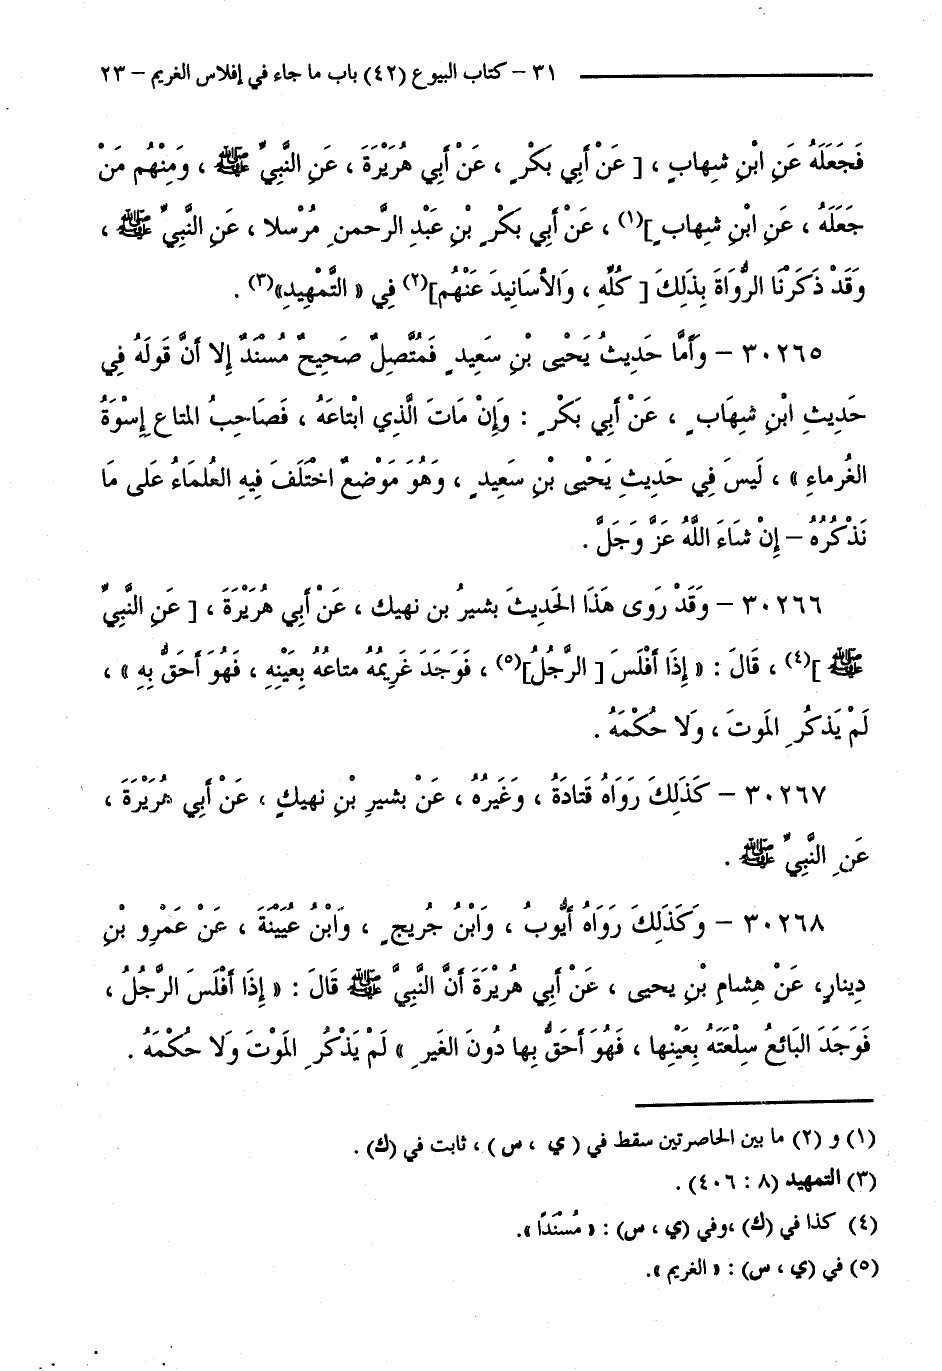 ٣١ – كتاب البيوع (٤٢) باب ما جاء في إفلاس الغريم – ٢٣
فَجَعَلَهُ عَنِ ابْنِ شِهابٍ ، [ عَنْ أَبِي بَكْرٍ ، عَنْ أَبِي هُرَيْرَةَ ، عَنِ النَّبِيِّ ﷺ ، وَمِنْهُم مَنْ
جَعَلَهُ ، عَنِ ابْنِ شِهابٍ ](١) ، عَنْ أَبِي بَكْرِ بْنِ عَبْدِ الرَّحمنِ مُرْسلا ، عَنِ النَّبِيِّ ﷺ ،
وَقَدْ ذَكَرْنَا الرُّوَاةَ بِذَلِكَ [ كُلِّهِ ، وَالأسَانِيدَ عَنْهُم](٢) فِي « التَّمْهِيدِ»(٣) .
٣٠٢٦٥ – وأَمَّا حَدِيثُ يَحْيى بْنِ سَعِيدٍ فَمُتَّصِلٌ صَحِيحٌ مُسْنَدٌ إلا أَنَّ قَولَهُ فِي
حَدِيثِ ابْنِ شِهَابٍ ، عَنْ أَبِي بَكْرٍ : وَإِنْ مَاتَ الَّذِي ابْتاعَهُ ، فَصَاحِبُ المتاعِ إِسْوَةُ
الغُرماءِ » ، لَيسَ فِي حَدِيثِ يَحْيى بْنِ سَعِيدٍ ، وَهُوَ مَوْضِعٌ اخْتَلَفَ فِيهِ العُلَمَاءُ عَلى مَا
نَذْكُرُهُ – إِنْ شَاءَ اللَّهُ عَزَّ وَجَلَّ .
٣٠٢٦٦ – وَقَدْ رَوى هَذَا الحَدِيثَ بشيرُ بن نهيك ، عَنْ أَبِي هُرَيْرَةَ ، [ عَنِ النَّبِيِّ
ﷺ ](٤) ، قَالَ : « إِذَا أَفْلَسَ [ الرَّجُلُ](٥) ، فَوَجَدَ غَرِيمُهُ متاعُهُ بِعَيْنِهِ ، فَهُوَ أَحَقُّ بِهِ » ،
لَمْ يَذكُرِ المَوتَ ، وَلا حُكْمَهُ .
٣٠٢٦٧ – كَذَلِكَ رَوَاهُ قَتادَةُ ، وَغَيرُهُ ، عَنْ بشيرِ بْنِ نهيكٍ ، عَنْ أَبِي هُرَيْرَةَ ،
عَنِ النَّبِيِّ ﷺ .
٣٠٢٦٨ – وَكَذَلِكَ رَوَاهُ أَيُّوبُ ، وَابْنُ جُريجٍ ، وَابْنُ عُيَيْنَةَ ، عَنْ عَمْرِو بْنِ
دِينارٍ، عَنْ هِشامِ بْنِ يحيى ، عَنْ أَبِي هُرَيْرَةَ أَنَّ النَّبِيَّ ﷺ قَالَ : « إِذَا أَفْلَسَ الرَّجُلُ ،
فَوَجَدَ البَائعُ سِلْعَتَهُ بِعَيْنِها ، فَهُوَ أَحَقُّ بِها دُونَ الغَيرِ » لَمْ يَذْكُرِ المَوْتَ وَلا حُكْمَهُ .
(١) و (٢) ما بين الحاصرتين سقط في ( ي ، س ) ، ثابت في (ك) .
(٣) التمهيد (٨ : ٤٠٦) .
(٤) كذا في (ك) ،وفي (ي ، س) : « مُسْنَدًا ».
(٥) في (ي ، س) : « الغريم ».